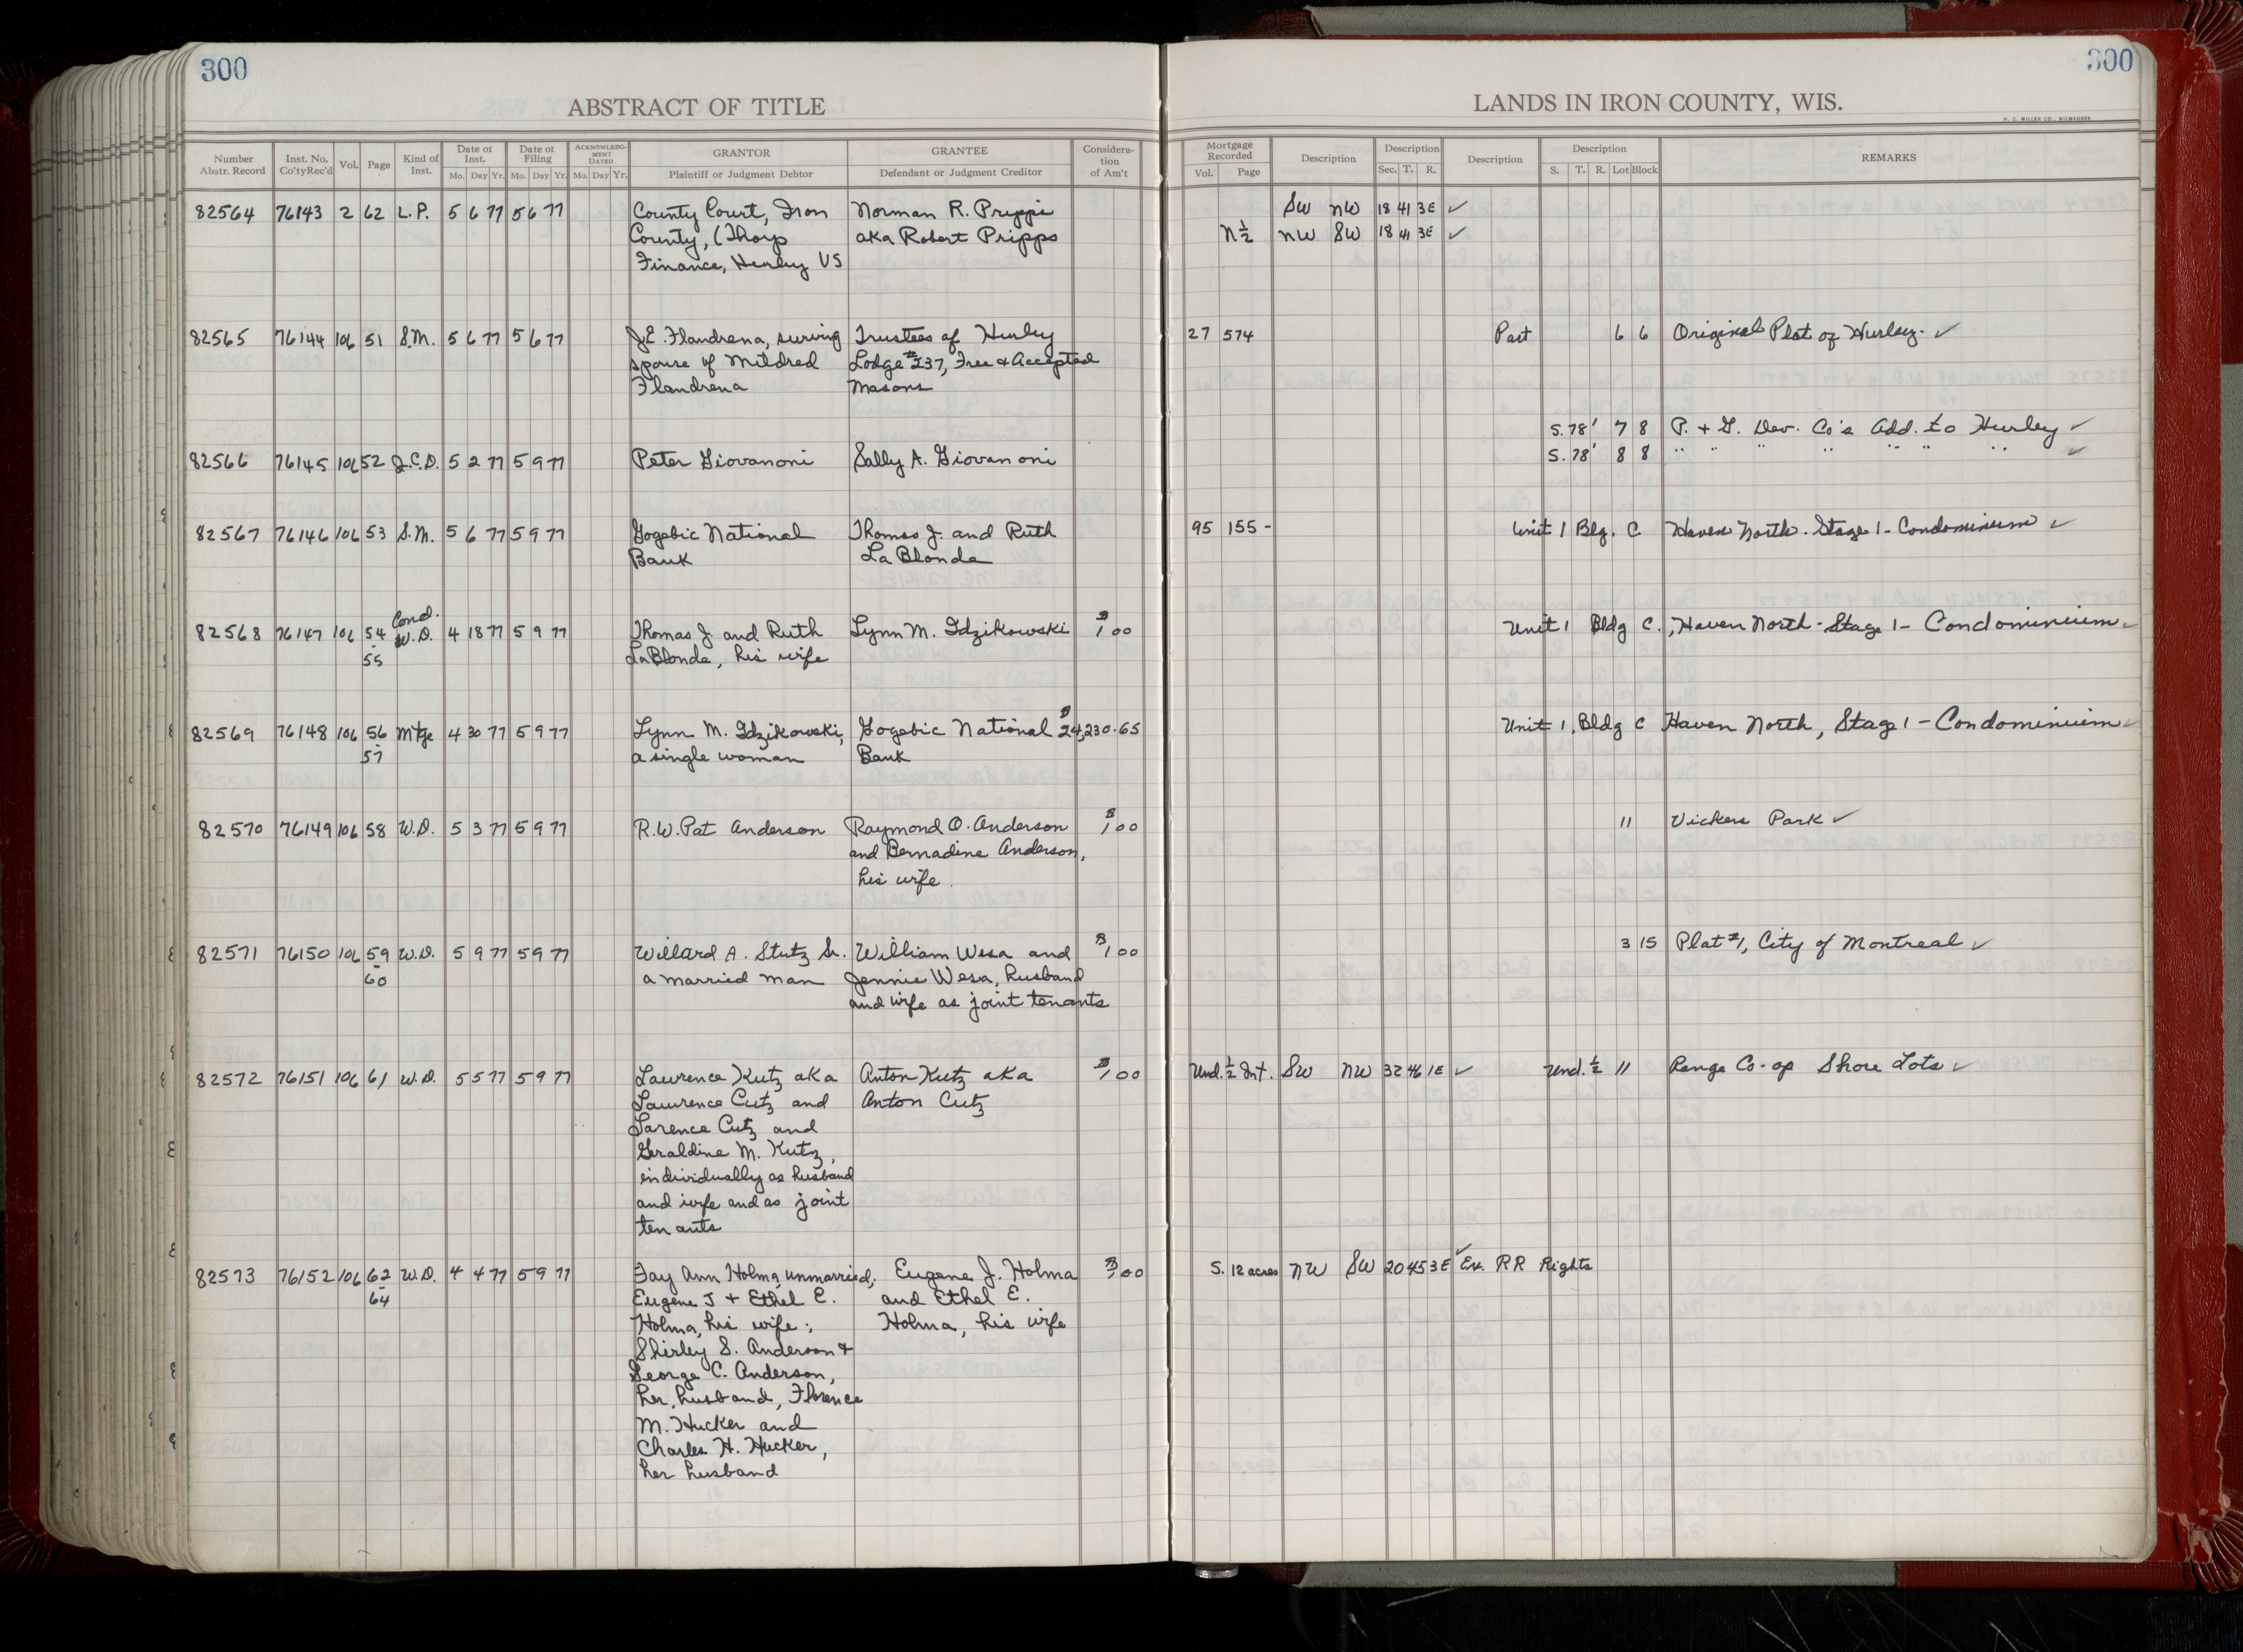 300
300
ABSTRACT OF TITLE
LANDS IN IRON COUNTY, WIS.
H. C. MILLER CO., MILWAUKEE
Number Abstr. Record | Inst. No. Co'ty Rec'd | Vol. | Page | Kind of Inst. | Date of Inst. Mo. Day Yr. | Date of Filing Mo. Day Yr. | ACKNOWLEDG-MENT DATED Mo. Day Yr. | GRANTOR Plaintiff or Judgment Debtor | GRANTEE Defendant or Judgment Creditor | Considera-tion of Am't | Mortgage Recorded Vol. Page | Description | Description Sec. T. R. | Description | Description S. T. R. Lot Block | REMARKS
82564 76143 2 62 L.P. 5 6 77 5 6 77 County Court, Iron Norman R. Pripps SW NW 18 41 3E ✓
County, (Thorp aka Robert Pripps N½ NW SW 18 41 3E ✓
Finance, Hurley VS
82565 76144 106 51 S.M. 5 6 77 5 6 77 J.E. Flandrena, surving Trustees of Hurley 27 574 Part 6 6 Original Plat of Hurley. ✓
spouse of Mildred Lodge #237, Free & Accepted
Flandrena Masons
S. 78' 7 8 P. + G. Dev. Co's Add. to Hurley ✓
82566 76145 106 52 J.C.D. 5 2 77 5 9 77 Peter Giovanoni Sally A. Giovanoni S. 78' 8 8 " " " " " " " ✓
82567 76146 106 53 S.M. 5 6 77 5 9 77 Gogebic National Thomas J. and Ruth 95 155- Unit 1 Blg. C Haven North. Stage 1- Condominium ✓
Bank LaBlonde
82568 76147 106 54-55 Cond. W.D. 4 18 77 5 9 77 Thomas J. and Ruth Lynn M. Idzikowski $1.00 Unit 1 Bldg C., Haven North-Stage 1- Condominium ✓
LaBlonde, his wife
82569 76148 106 56-57 Mtge 4 30 77 5 9 77 Lynn M. Idzikowski, Gogebic National $24,230.65 Unit 1, Bldg C Haven North, Stage 1 - Condominium ✓
a single woman Bank
82570 76149 106 58 W.D. 5 3 77 5 9 77 R.W. Pat Anderson Raymond O. Anderson $1.00 11 Vickers Park ✓
and Bernadine Anderson,
his wife.
82571 76150 106 59-60 W.D. 5 9 77 5 9 77 Willard A. Stutz Sr. William Wesa and $1.00 3 15 Plat #1, City of Montreal ✓
a married man Jennie Wesa, husband
and wife as joint tenants
82572 76151 106 61 W.D. 5 5 77 5 9 77 Lawrence Kutz aka Anton Kutz aka $1.00 Und. ½ Int. SW NW 32 46 1E ✓ Und. ½ 11 Range Co-op Shore Lots ✓
Lawrence Cutz and Anton Cutz
Larence Cutz and
Geraldine M. Kutz,
individually as husband
and wife and as joint
tenants
82573 76152 106 62-64 W.D. 4 4 77 5 9 77 Fay Ann Holma, unmarried; Eugene J. Holma $1.00 S. 12 acres NW SW 20 45 3E ✓ Ex. RR Rights
Eugene J + Ethel E. and Ethel E.
Holma, his wife; Holma, his wife
Shirley S. Anderson +
George C. Anderson,
her husband, Florence
M. Hucker and
Charles H. Hucker,
her husband